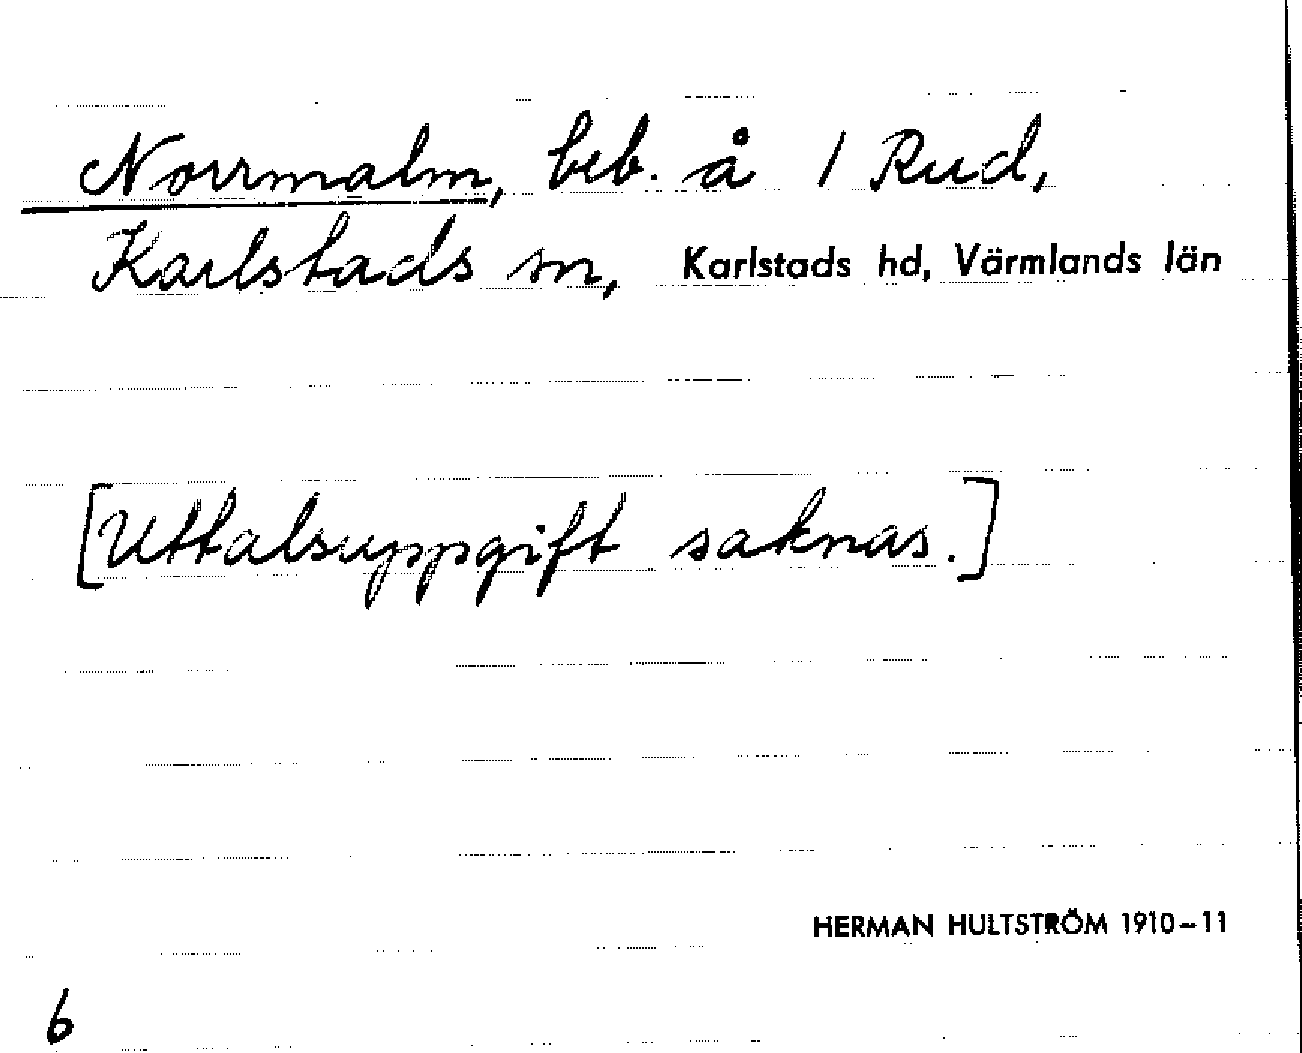 Norrmalm, beb. å 1 Rud,
Karlstads sn, Karlstads hd, Värmlands län
[Uttalsuppgift saknas.]
HERMAN HULTSTRÖM 1910-11
6